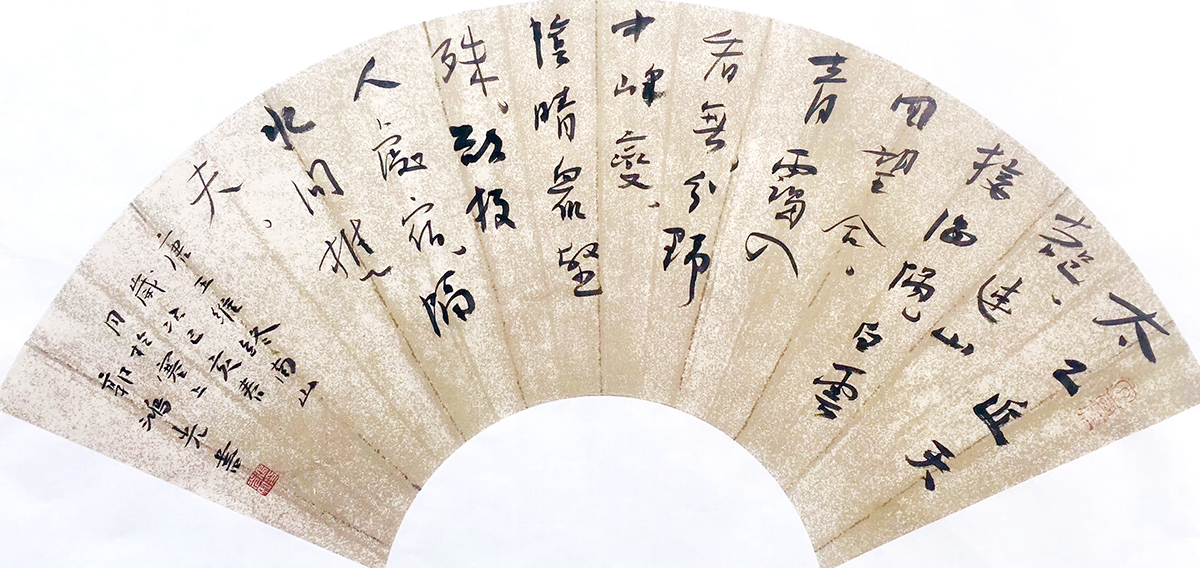 太乙近天
都、連山
接海隅白雲
回望合。
青靄入
看無、分野
中峰變、
陰晴眾壑
殊、欲投
人處宿、隔
水問樵
夫。
唐王維終南山
歲次己亥春
月於塞上
郭鴻書